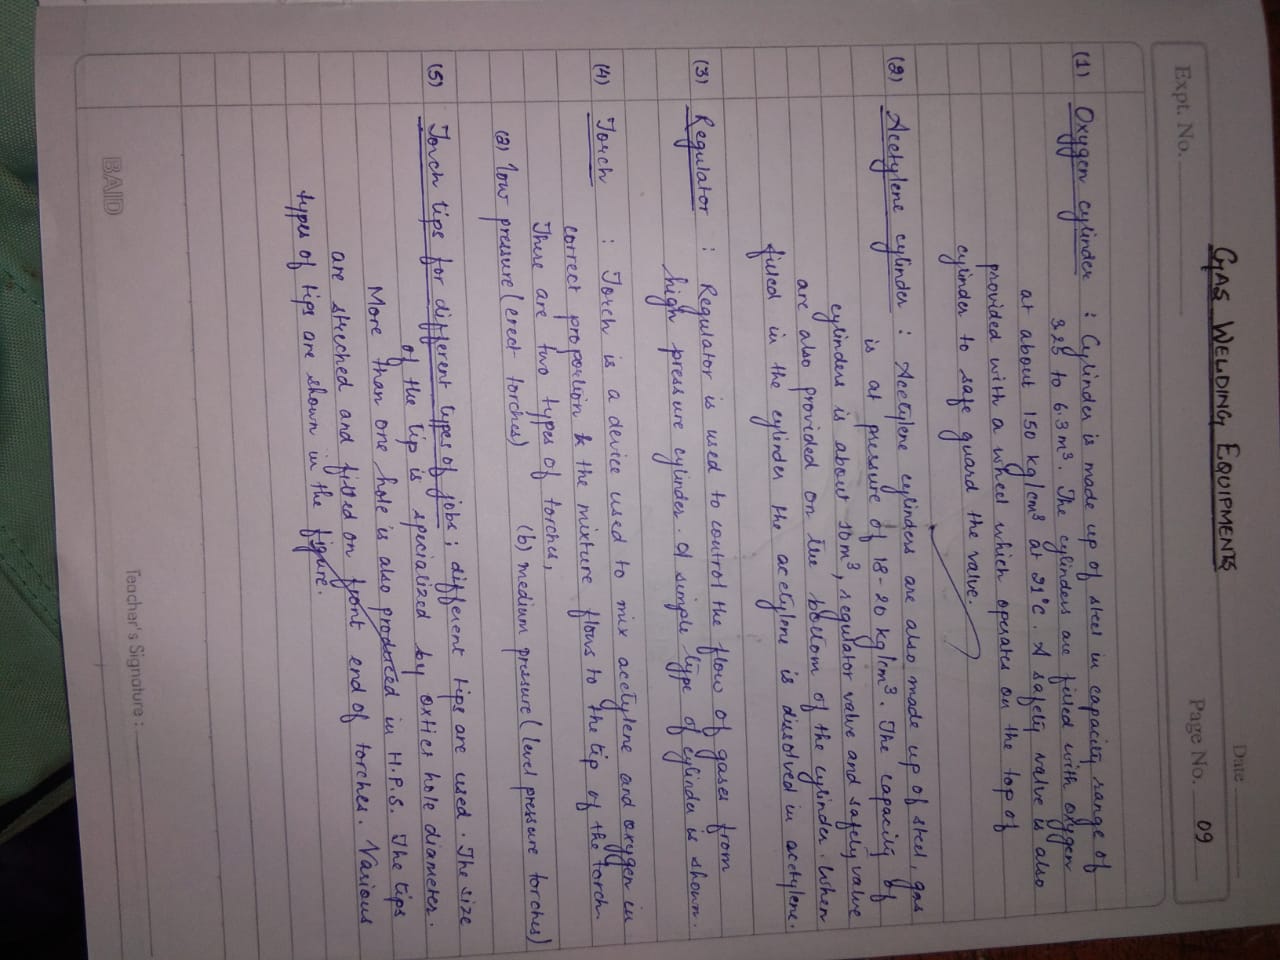 Date
Expt. No.
Page No. 09
GAS WELDING EQUIPMENTS
(1) Oxygen cylinder : Cylinder is made up of steel in capacity range of
3.25 to 6.3 m³. The cylinders are filled with oxygen
at about 150 kg/cm³ at 21°C. A safety valve is also
provided with a wheel which operates on the top of
cylinder to safe guard the valve.
(2) Acetylene cylinder : Acetylene cylinders are also made up of steel, gas
is at pressure of 18-20 kg/cm³. The capacity of
cylinders is about 10m³, regulator valve and safety valve
are also provided on the bottom of the cylinder. When
filled in the cylinder the acetylene is dissolved in acetylene.
(3) Regulator : Regulator is used to control the flow of gases from
high pressure cylinder. A simple type of cylinder is shown.
(4) Torch : Torch is a device used to mix acetylene and oxygen in
correct proportion & the mixture flows to the tip of the torch
There are two types of torches,
(a) low pressure (erect torches) (b) medium pressure (level pressure torches)
(5) Torch tips for different types of jobs : different tips are used. The size
of the tip is specialized by hole diameter.
More than one hole is also produced in H.P.S. The tips
are streched and fitted on front end of torches. Various
types of tips are shown in the figure.
Teacher's Signature :
BAID